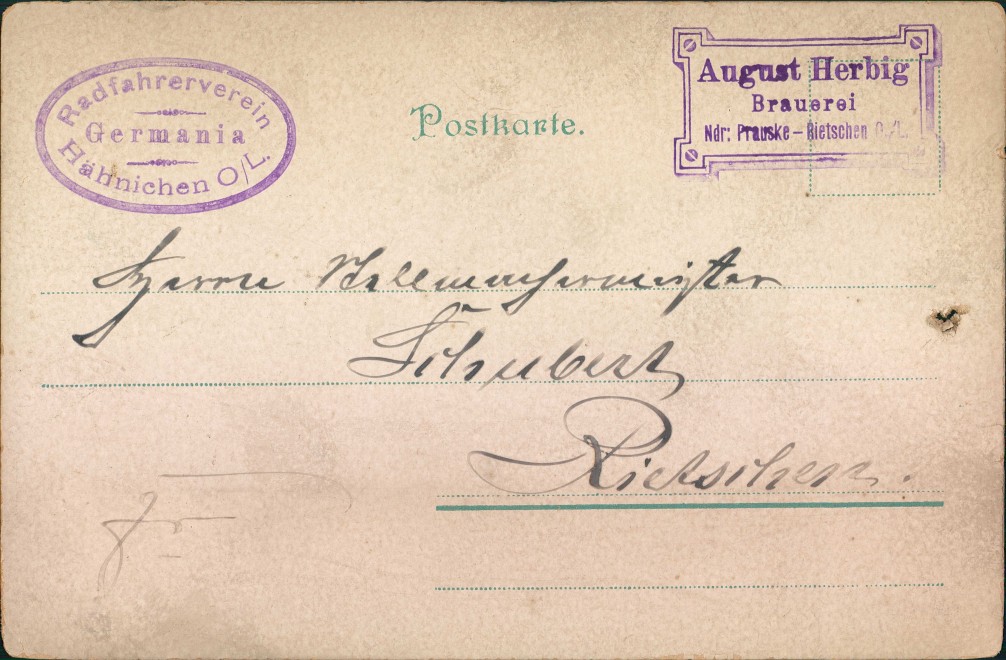 Radfahrerverein
Germania
Hähnichen O/L.
Postkarte.
August Herbig
Brauerei
Ndr: Prauske – Rietschen O./L.
Herrn Stellmachermeister
Schubert
Rietschen.